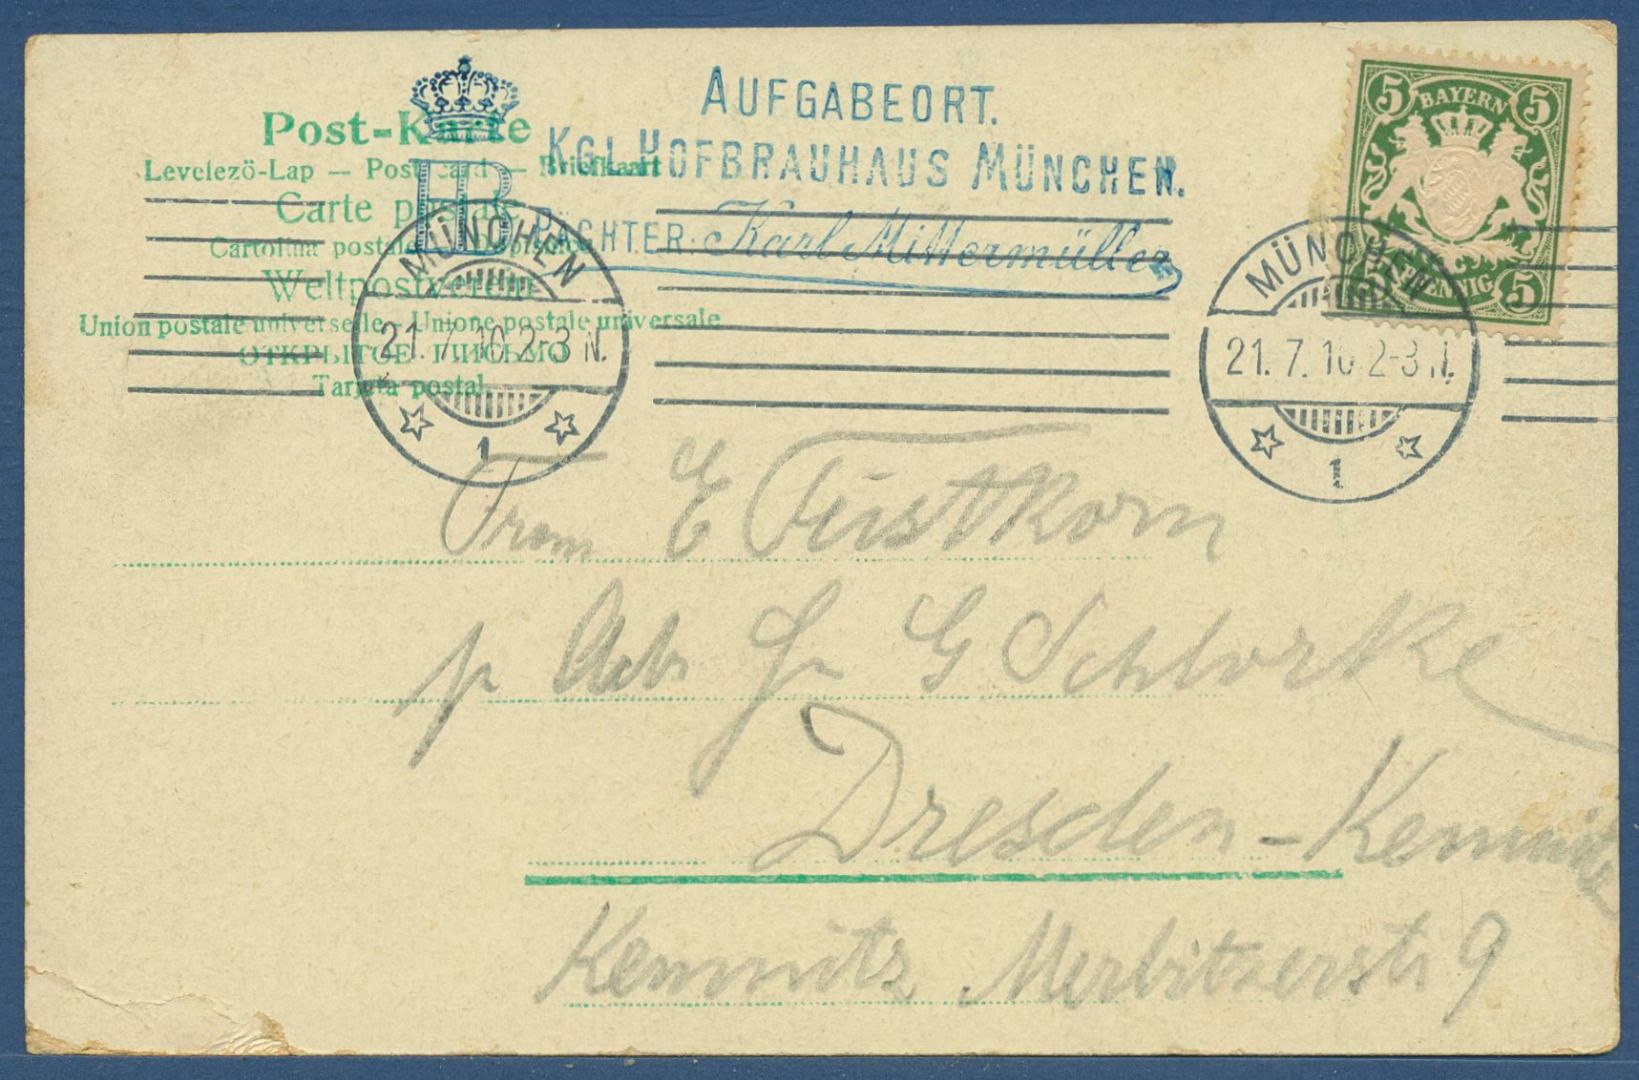 Post-Karte
Levelezö-Lap — Post card — Briefkaart
Carte postale
Cartolina postale
Weltpostverein
Union postale universelle. Unione postale universale
ОТКРЫТОЕ ПИСЬМО
Tarjeta postal.
HB
AUFGABEORT.
KGL HOFBRÄUHAUS MÜNCHEN.
PÄCHTER: Karl Mittermüller
5 BAYERN 5
5 PFENNIG 5
MÜNCHEN
21.7.10.2-3 N.
1
MÜNCHEN
21.7.10 2-3 N.
1
E Feistkorn
p Adr G Schlortke
Dresden-Kemnitz
Kemnitz Merbitzerstr 9